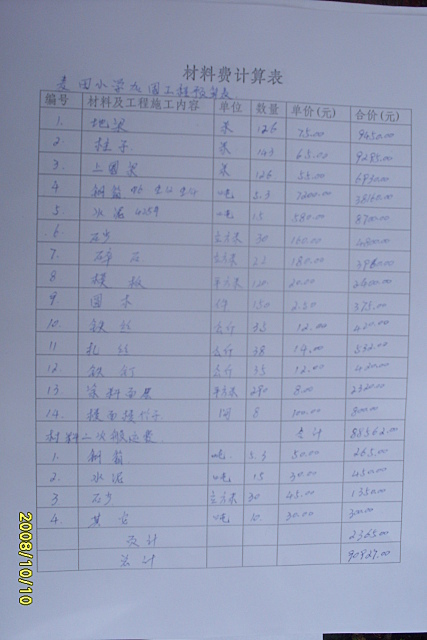 材料费计算表
麦田小学校园工程预算表
编号 材料及工程施工内容 单位 数量 单价(元) 合价(元)
1. 地梁 米 126 75.00 9450.00
2. 柱子 米 143 65.00 9295.00
3. 上圈梁 米 126 55.00 6930.00
4 钢筋 吨 5.3 7200.00 38160.00
5 水泥 425# 吨 15 580.00 8700.00
6 石沙 立方米 30 160.00 4800.00
7. 碎石 立方米 22 180.00 3960.00
8 模板 平方米 120 20.00 2400.00
9 圆木 150 2.50 375.00
10. 铁丝 公斤 35 12.00 420.00
11 扎丝 公斤 38 14.00 532.00
12 铁钉 公斤 35 12.00 420.00
13 涂料 平方米 290 8.00 2320.00
14. 8 100.00 800.00
材料二次搬运费 合计 88562.00
1. 钢筋 吨 5.3 50.00 265.00
2. 水泥 吨 15 30.00 450.00
3 石沙 立方米 30 45.00 1350.00
4. 其它 吨 10 30.00 300.00
合计 2365.00
总计 90927.00
2008/10/10